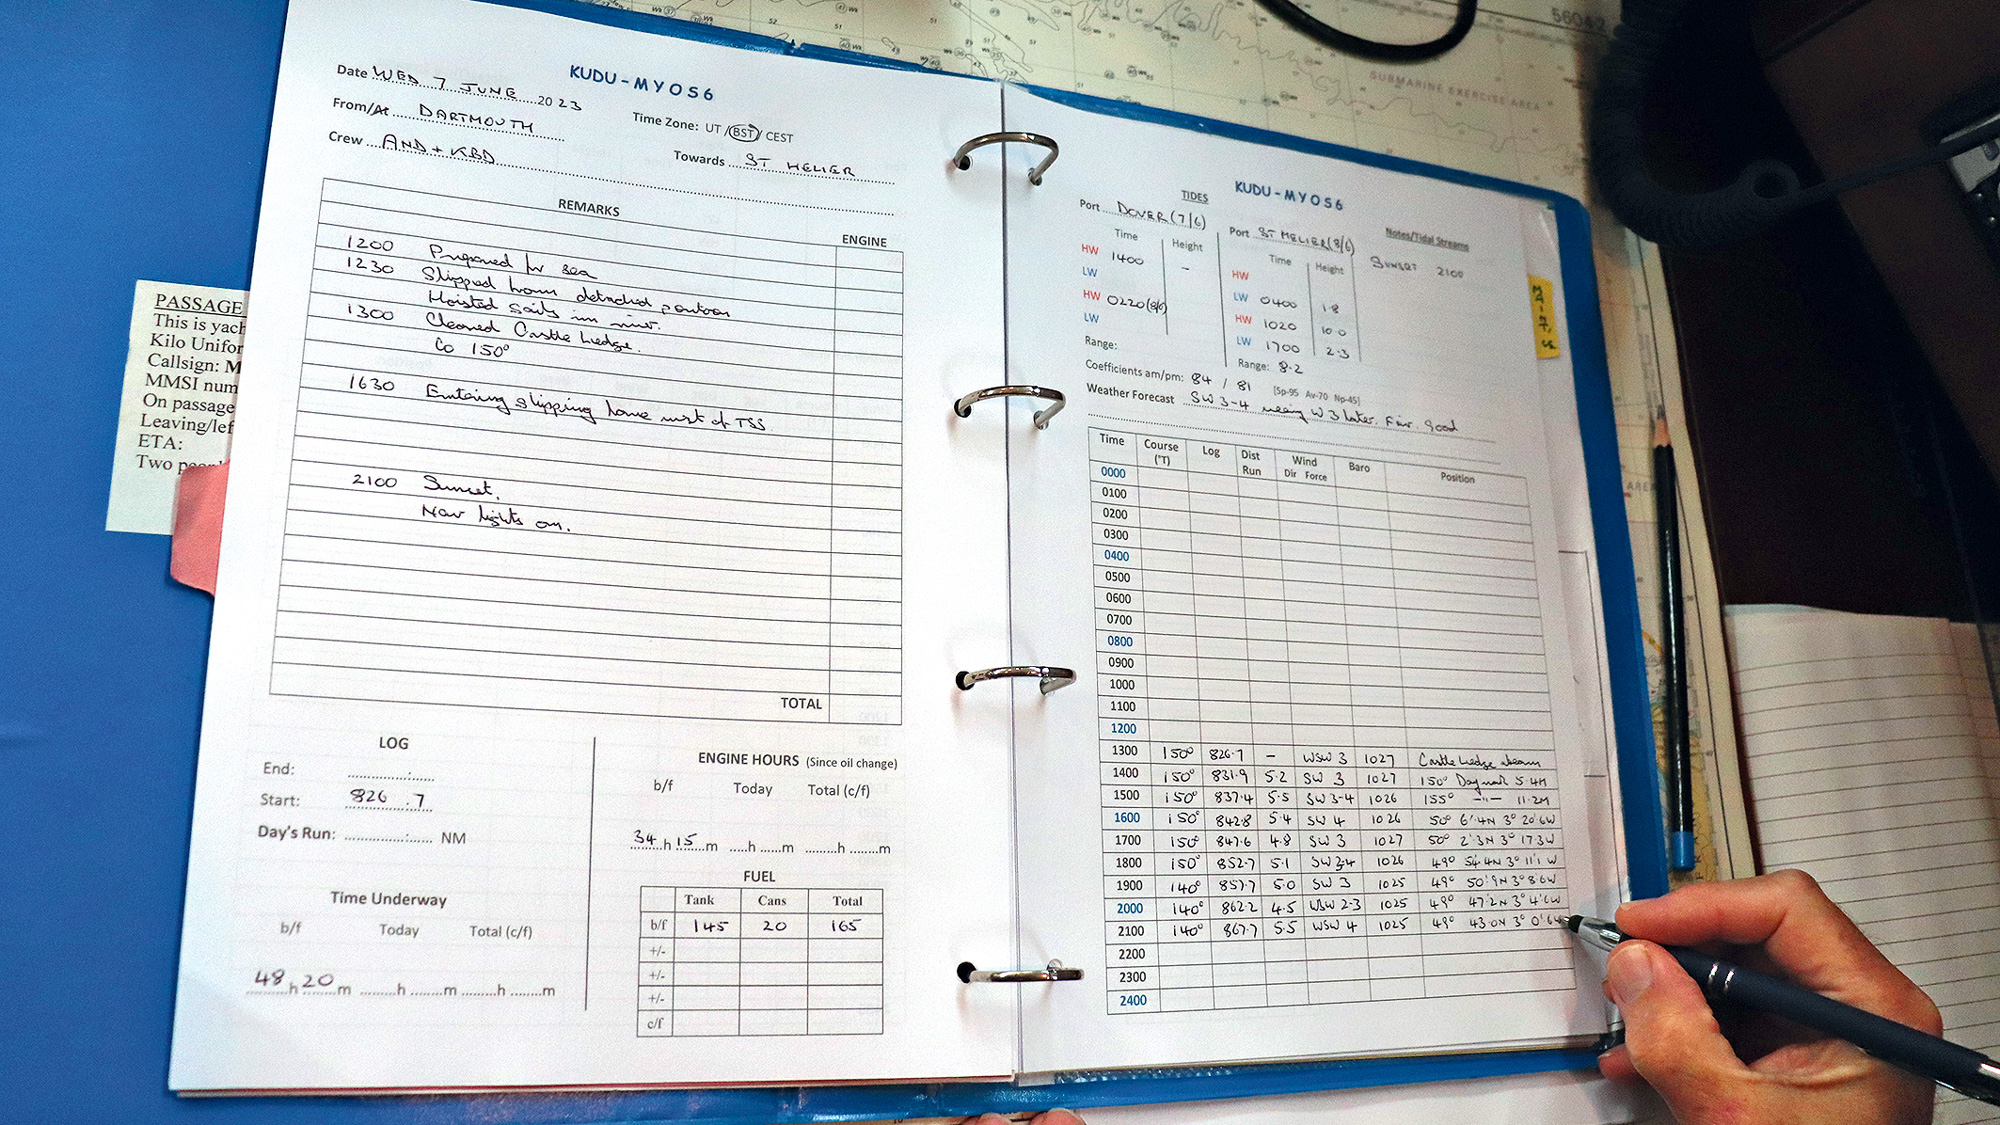 KUDU - MYOS6
Date WED 7 JUNE 2023
Time Zone: UT / BST / CEST
From/At DARTMOUTH
Towards ST HELIER
Crew AND + KBD
REMARKS ENGINE
1200 Prepared for sea
1230 Slipped from detached pontoon
Hoisted sails in river.
1300 Cleared Castle Ledge.
Co 150°
1630 Entering shipping lane west of TSS
2100 Sunset.
Nav lights on.
TOTAL
LOG
End:
Start: 826.7
Day's Run: NM
Time Underway
b/f Today Total (c/f)
48 h 20 m h m h m
ENGINE HOURS (Since oil change)
b/f Today Total (c/f)
34 h 15 m h m h m
FUEL
Tank Cans Total
b/f 145 20 165
+/-
+/-
+/-
c/f
PASSAGE
This is yach
Kilo Unifor
Callsign: M
MMSI num
On passage
Leaving/lef
ETA:
Two peopl
KUDU - MYOS6
TIDES
Port DOVER (7/6)
Time Height
HW 1400 -
LW
HW 0220 (8/6)
LW
Range:
Port ST HELIER (8/6)
Time Height
HW
LW 0400 1.8
HW 1020 10.0
LW 1700 2.3
Range: 8.2
Notes/Tidal Streams
SUNSET 2100
Coefficients am/pm: 84 / 81 [Sp-95 Av-70 Np-45]
Weather Forecast SW 3-4 veering W3 later. Fair. good
Time Course (°T) Log Dist Run Wind Dir Force Baro Position
0000
0100
0200
0300
0400
0500
0600
0700
0800
0900
1000
1100
1200
1300 150° 826.7 - WSW 3 1027 Castle Ledge abeam
1400 150° 831.9 5.2 SW 3 1027 150° Daymark 5.4M
1500 150° 837.4 5.5 SW 3-4 1026 155° -"- 11.2M
1600 150° 842.8 5.4 SW 4 1026 50° 6'.4N 3° 20'.6W
1700 150° 847.6 4.8 SW 3 1027 50° 2'.3N 3° 17'.3W
1800 150° 852.7 5.1 SW 3-4 1026 49° 54'.4N 3° 11'.1W
1900 140° 857.7 5.0 SW 3 1025 49° 50'.9N 3° 8'.6W
2000 140° 862.2 4.5 WSW 2-3 1025 49° 47'.2N 3° 4'.6W
2100 140° 867.7 5.5 WSW 4 1025 49° 43.0N 3° 0'.6W
2200
2300
2400
56042
SUBMARINE EXERCISE AREA